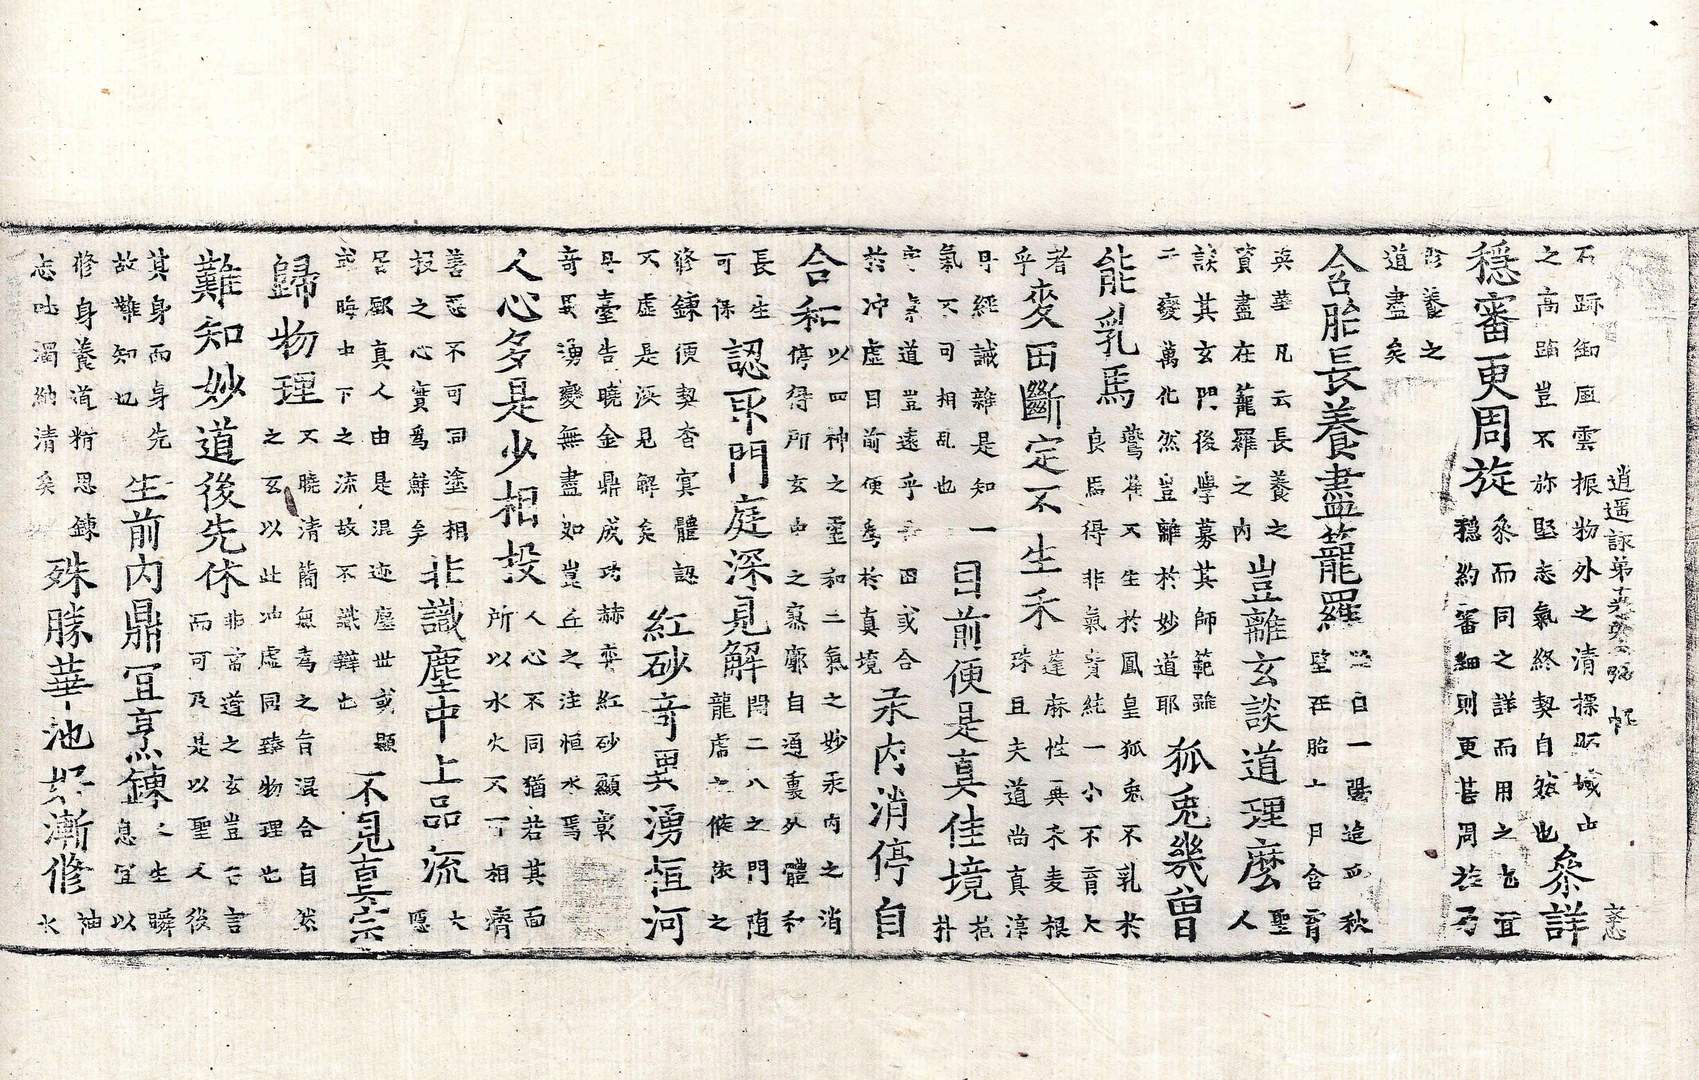 逍遥詠第
石跡御風雲振物外之清標昭域中
之高蹈豈不弥堅志氣終契自然也
叅詳
穩審更周旋
叅而同之詳而用之也宜
穩約審細則更甚周旋乃
養之
道盡矣
含胎長養盡籠羅
日一陽造西秋
堅在胎上月含育
英華凡云長養之
資盡在籠羅之内
豈離玄談道理麼
聖
人
談其玄門後學募其師範雖
二變萬化然豈離於妙道耶
狐兔幾曾
能乳馬
鷙雀不生於鳳皇狐兔不乳於
良馬得非氣貴純一小不育大
者
乎
麥田斷定不生禾
蓬麻性異禾麦根
殊且夫道尚真淳
丹經誡雜是知一
氣不可相乱也
目前便是真佳境
道豈遠乎或合
於冲虚目前便爲於真境
汞内消停自
合和
以四神之靈和二氣之妙汞内之消
停得所玄白之寡廓自通裏外體和
長生
可保
認取門庭深見解
開二八之門随
龍虎之催依之
修鍊便契杳冥體認
又虚是深見解矣
紅砂奇異湧恒河
丹臺告曉金鼎成功赫奕紅砂顯彰
奇異湧變無盡如豈丘之注恒水焉
人心多是少相投
人心不同猶若其面
所以水火不可相濟
善惡不可同塗相
投之心實爲鮮矣
非識塵中上品流
大
隱
居鄽真人由是混迹塵世或顯
或晦中下之流故不識辯也
不見真宗
歸物理
不曉清簡無爲之旨混合自然
之玄以此冲虚同臻物理也
難知妙道後先休
非常道之玄豈可言
而可及是以聖人後
其身而身先
故難知也
生前内鼎宜烹鍊
之生瞬
息宜以
修身養道精思鍊
志吐濁納清矣
殊勝華池好漸修
水